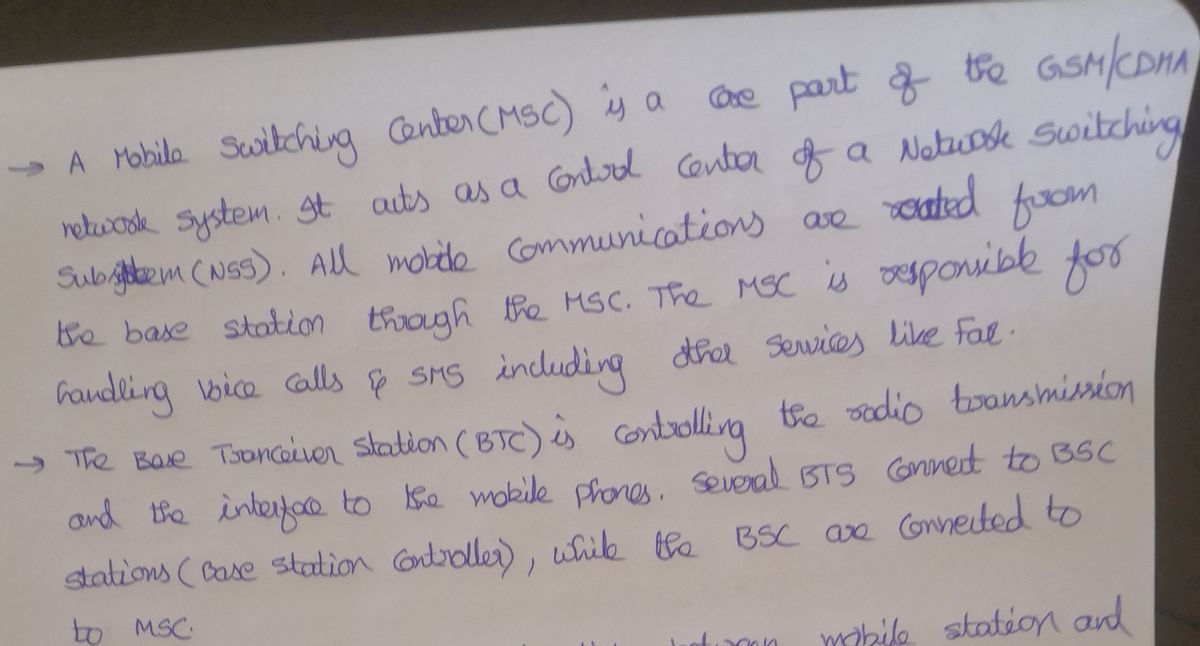 → A Mobile Switching Center (MSC) is a core part of the GSM/CDMA
network system. It acts as a Control Center of a Network Switching
Subsystem (NSS). All mobile Communications are routed from
the base station through the MSC. The MSC is responsible for
handling voice calls & SMS including other services like Fax.
→ The Base Tranceiver Station (BTC) is controlling the radio transmission
and the interface to the mobile phones. Several BTS connect to BSC
stations (Base Station Controller), while the BSC are connected to
to MSC.
mobile station and